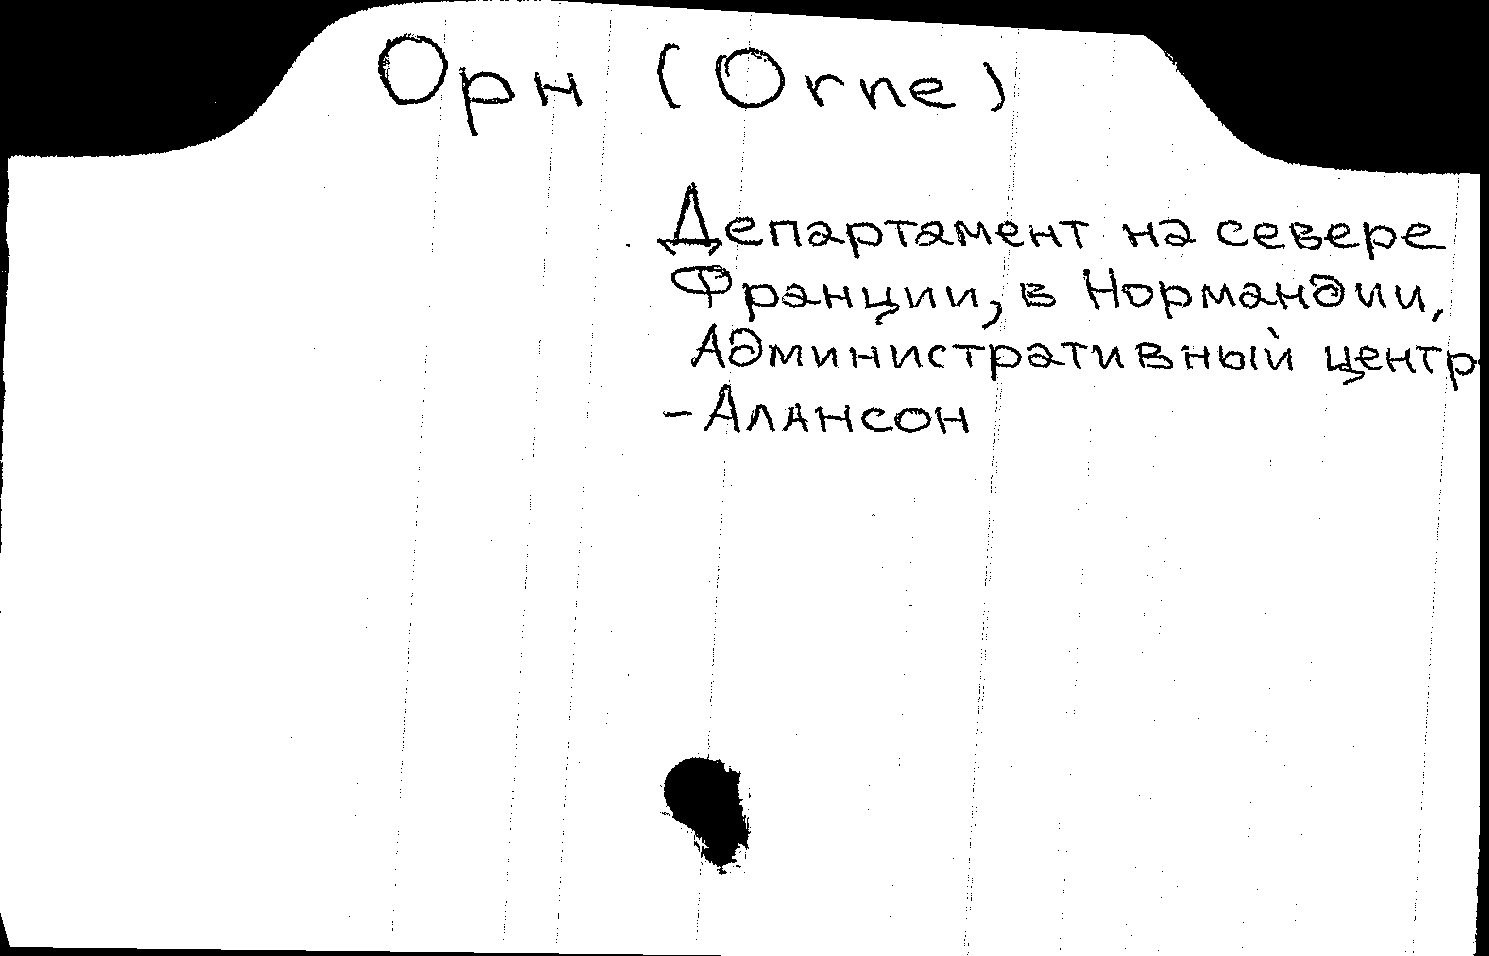 Орн (Orne)
Департамент на севере
Франции, в Нормандии,
Административный центр
-Алансон